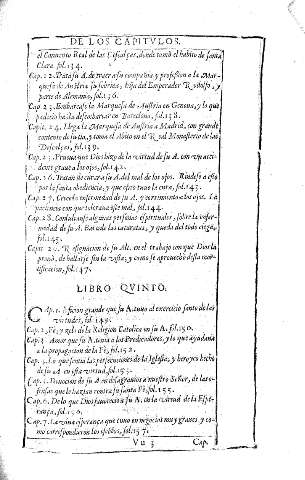 DE LOS CAPITVLOS.
el Convento Real de las Descalças, donde tomò el habito de santa
Clara. fol.134.
Cap. 22. Trata su A. de traer a su compañia y profession a la Mar-
quesa de Austria su sobrina, hija del Emperador Rodolfo, y
parte de Alemania, fol.136.
Cap. 23. Embarcase la Marquesa de Austria en Genova, y lo que
padecio hasta desembarcar en Barcelona, fol.138.
Cap. 24. Llega la Marquesa de Austria a Madrid, con grande
contento de su tia, y toma el Abito en el Real Monasterio de las
Descalças, fol.139.
Cap. 25. Prueua que Dios hizo de la virtud de su A. con vn acci-
dente graue a los ojos, fol.142.
Cap. 26. Tratan de curar a su A. del mal de los ojos. Rindese a esto
por la santa obediencia, y que efeto tuuo la cura, fol.143.
Cap. 27. Crueles enfermedad de su A. y corrimientos a los ojos. La
paciencia con que toleraua este mal, fol.144.
Cap. 28. Consultanse algunas personas espirituales, sobre la enfer-
medad de su A. Batenle las cataratas, y queda del todo ciega,
fol.145.
Cap. 29. Resignacion de su Alt. en el trabajo con que Dios la
prouò, de hallarse sin la vista, y como se aprouechò desta mor-
tificacion, fol.147.
LIBRO QVINTO.
CAp. 1. Aficion grande que su A. tuuo al exercicio santo de las
virtudes, fol. 149.
Cap. 2. Fè, y zelo de la Religion Catolica en su A. fol.150.
Cap. 3. Amor que su A. tenia a los Predicadores, y lo que ayudaua
a la propagacion de la Fè, fol.152.
Cap. 4. Lo que sentia las persecuciones de la Iglesia, y heroycos hechos
de su A. en esta virtud, fol.153.
Cap. 5. Deuocion de su A. en desagrauios a nuestro Señor, de las o-
fensas que le hazian contra su santa Fè, fol.155.
Cap. 6. De lo que Dios fauorecio a su A. en la virtud de la Espe-
rança, fol.156.
Cap. 7. La viua esperança que tuuo en negocios muy graues, y co-
mo correspondieron los efectos, fol.157.
Vu 3 Cap.